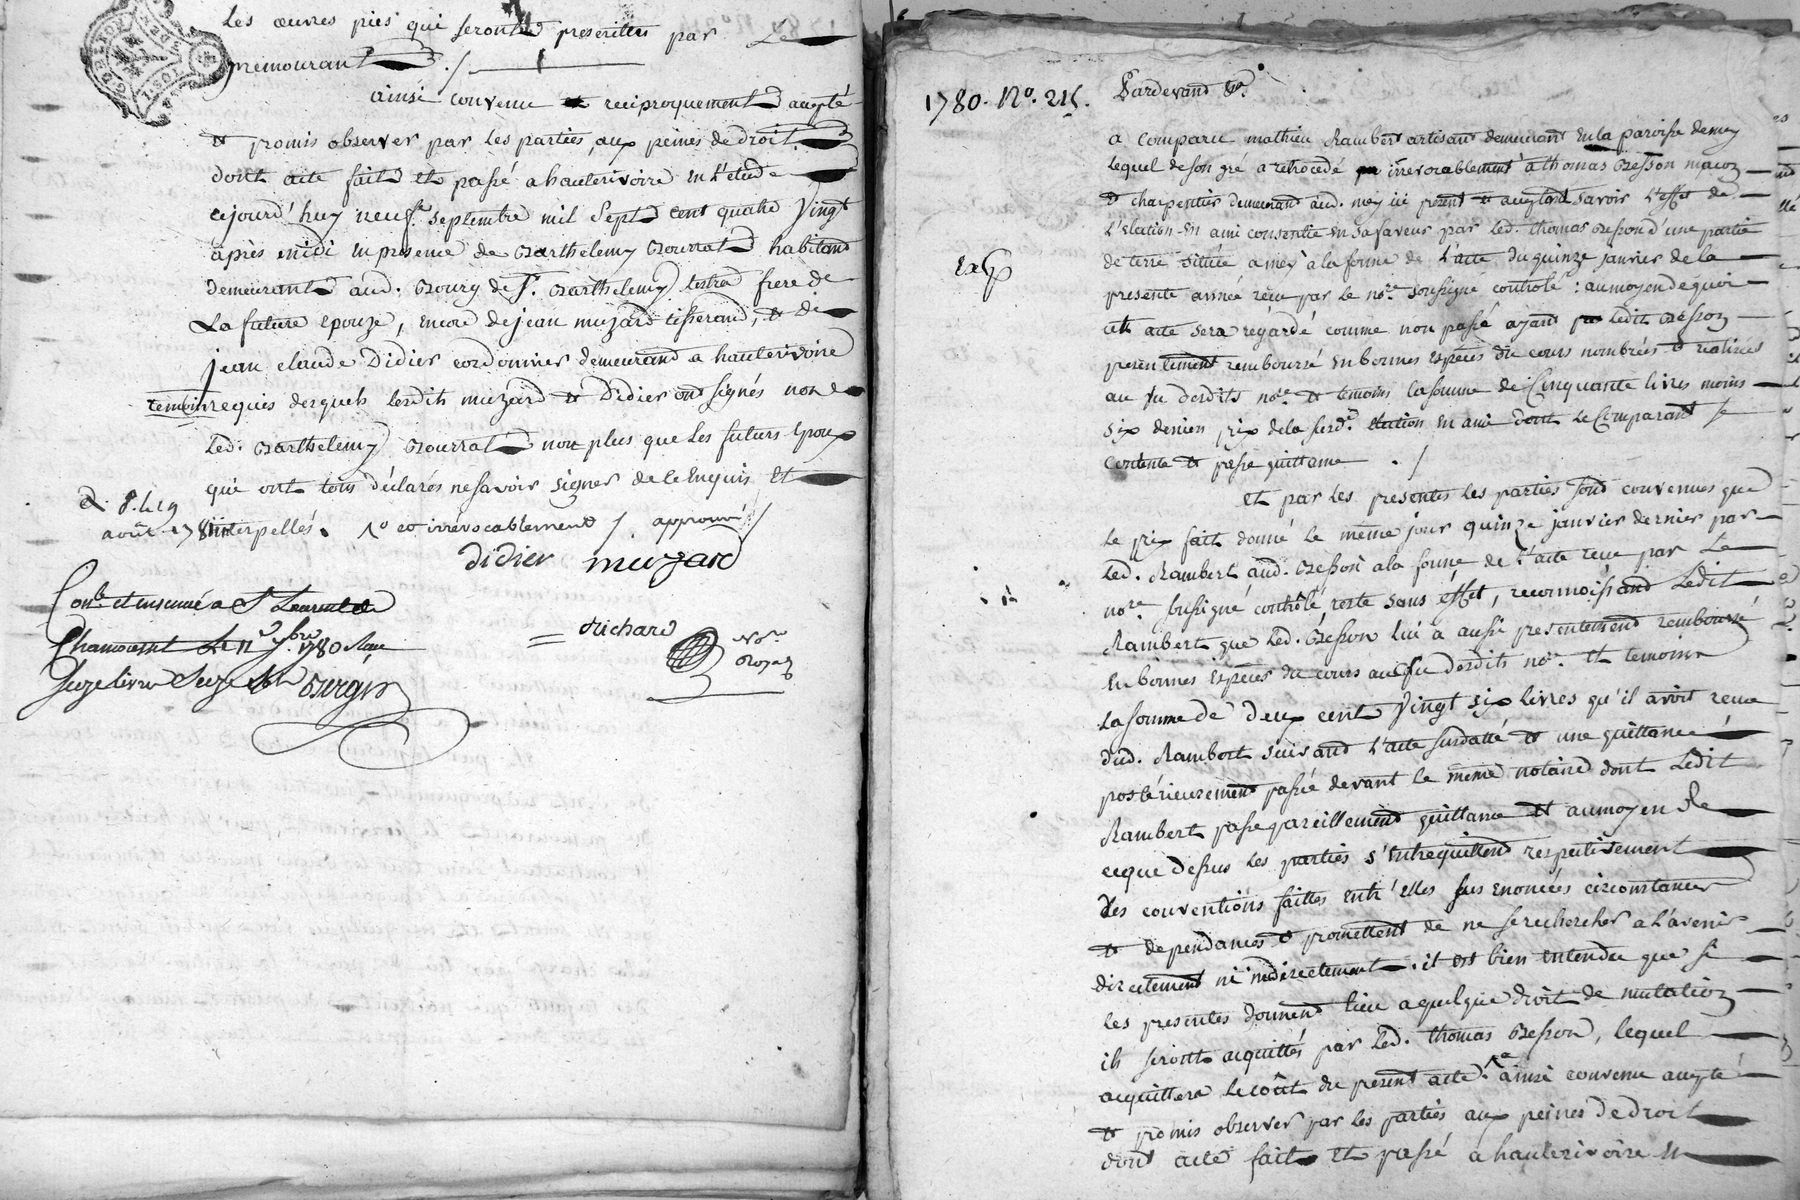 Les œuvres pies qui seront prescrittes par Le
premourant ./
ainsi convenu et reciproquement accepté
et promis observer par les parties, aux peines de droit
dont acte fait et passé a hauterivoire en l'etude
cejourd'huy neuf septembre mil sept cent quatre vingt
après midi en presence de Barthelemy Bourrat habitant
demeurant aud. Bourg de St. Barthelemy Lestra frere de
La future epouze, encore de jean muzard tisserand, et de
jean claude Didier cordonnier demeurant a hauterivoire
temoins requis desquels lesdits muzard et Didier ont signés non
Led. Barthelemy Bourrat non plus que les futurs epoux
qui ont tous déclarés ne savoir signer de ce enquis et
interpellés. 1º et irrévocablement / approuvé /
août 178
didier muzard
Richard
Nore
Royal
Conlé et insinué a St Laurent de
Chamousset Le 11 7bre 1780 Reçu
seize livres seize s Bergir
1780. Nº. 215.
Pardevant &a.
Exp
a comparu mathieu Rambert artisant demeurant en la paroisse de mey
lequel de son gré a retrocedé irrévocablement a thomas Besson maçon
et charpentier demeurant aud. mey icy présent et acceptant savoir l'effet de
l'Election en ami consentie en sa faveur par Led. thomas Besson d'une partie
de terre située a mey à la forme de l'acte du quinze janvier de la
presente année reçu par le nore. soussigné contrôlé : au moyen de quoi
cet acte sera régardé comme non passé ayant ledit Besson
presentement remboursé en bonnes espèces du cours nombrées et réalisées
au vu desdits nore. et temoins la somme de Cinquante livres moins
six deniers prix de la susd. election en ami dont Le Comparant se
contente et passe quittance ./
et par les presentes les parties sont convenues que
Le prix fait donné le même jour quinze janvier dernier par
Led. Rambert aud. Besson a la forme de l'acte reçu par Le
nore soussigné contrôlé reste sans éffet, reconnoissant Ledit
Rambert que Led. Besson lui a aussi presentement remboursé
en bonnes espèces du cours au vu desdits nore. et temoins
La somme de deux cent vingt six livres qu'il avoit reçu
dud. Rambert suivant l'acte susdatté et une quittance
postérieurement passée devant le même notaire dont Ledit
Rambert passe pareillement quittance et au moyen de
ce que dessus les parties s'entrequittent respectivement
des conventions faittes entr'elles sus enoncées circonstances
et dependances et promettent de ne se rechercher a l'avenir
directement ni indirectement. il est bien entendu que si
les presentes donnent lieu a quelque droit de mutation
ils seront acquittés par Led. thomas Besson, lequel
acquittera le coût du present acte. ainsi convenu accepté
et promis observer par les parties aux peines de droit
dont acte fait et passé a hauterivoire en